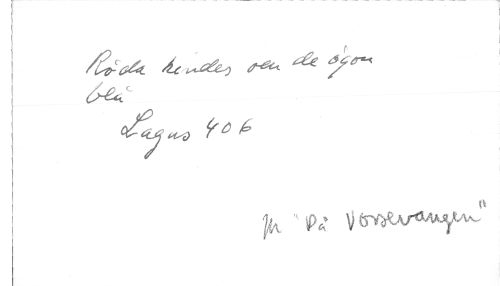 Röda kindes oen de ögon
blå
Lagus 406
jfr "På Vossevangen"